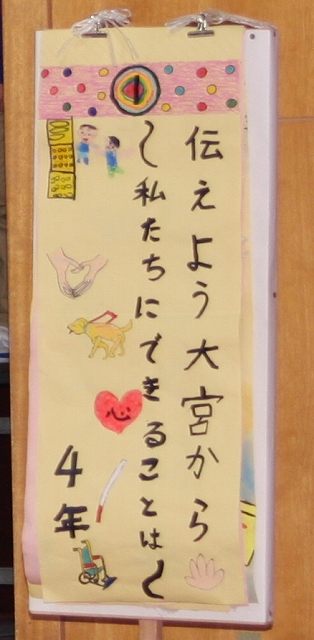 伝えよう大宮から
〜私たちにできることは〜
心
4年